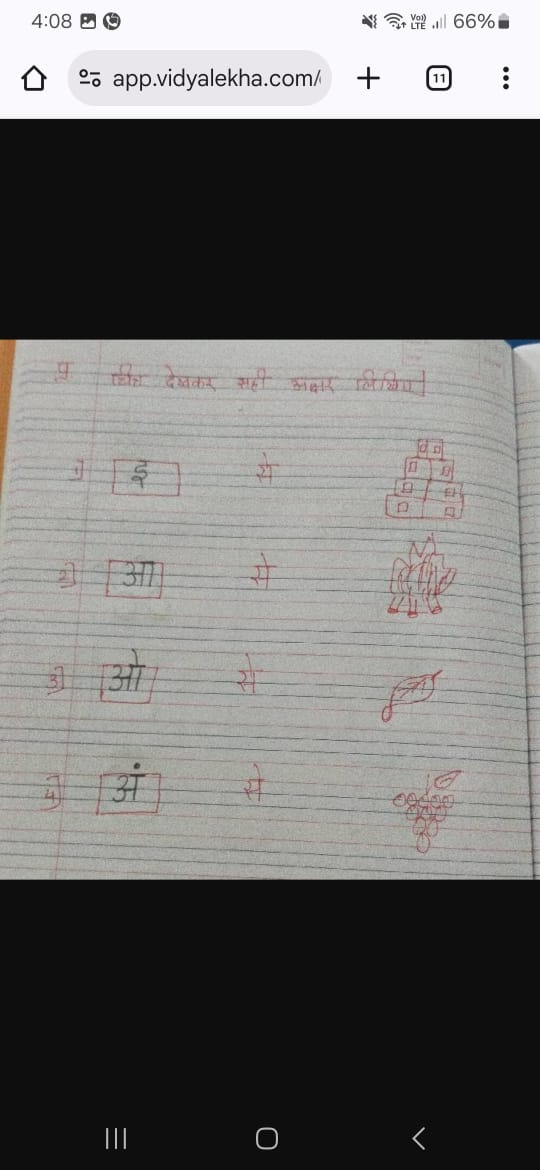 4:08 Vo)) LTE 66%
app.vidyalekha.com/ 11
प्र चित्र देखकर सही अक्षर लिखिए
1) इ से
2) आ से
3) ओ से
4) अं से